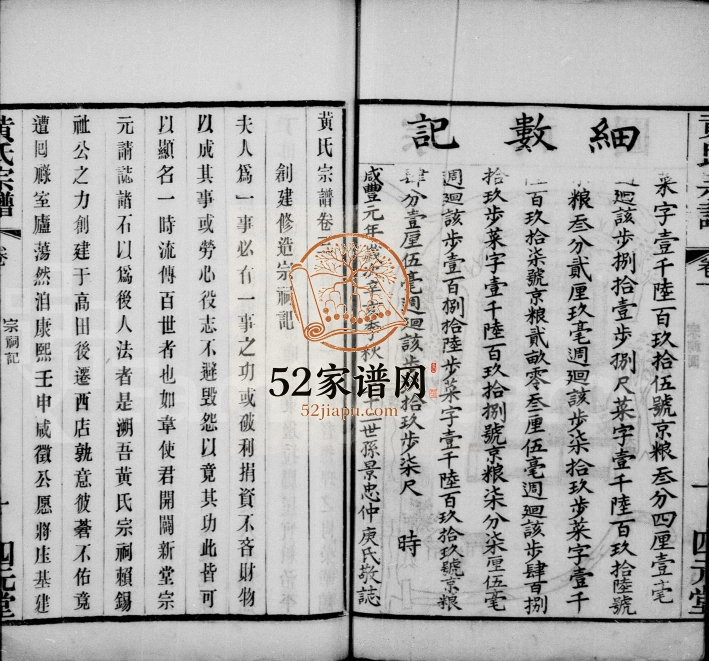 細數記
菜字壹千陸百玖拾伍號京粮叁分四厘壹毫
週廻該步捌拾壹步捌尺菜字壹千陸百玖拾陸號
京粮叁分貳厘玖毫週廻該步柒拾玖步菜字壹千
陸百玖拾柒號京粮貳畝零叁厘伍毫週廻該步肆百捌
拾玖步菜字壹千陸百玖拾捌號京粮柒分柒厘伍毫
週廻該步壹百捌拾陸步菜字壹千陸百玖拾玖號京粮
肆分壹厘伍毫週廻該步拾玖步柒尺
時
咸豐元年歲次辛亥季秋世孫景忠仲庚氏敬誌
黃氏宗譜
卷一
四元堂
黃氏宗譜卷
創建修造宗祠記
夫人爲一事必有一事之功或破利捐資不吝財物
以成其事或勞心役志不避毀怨以竟其功此皆可
以顯名一時流傳百世者也如章使君開闢新堂宗
元請誌諸石以爲後人法者是溯吾黃氏宗祠賴錫
祉公之力創建于高田後遷西店孰意彼蒼不佑竟
遭囘祿室廬蕩然洎康熙壬申咸徵公愿將庄基建
黃氏宗譜
卷
宗祠記
四元堂
52家谱网
52jiapu.com